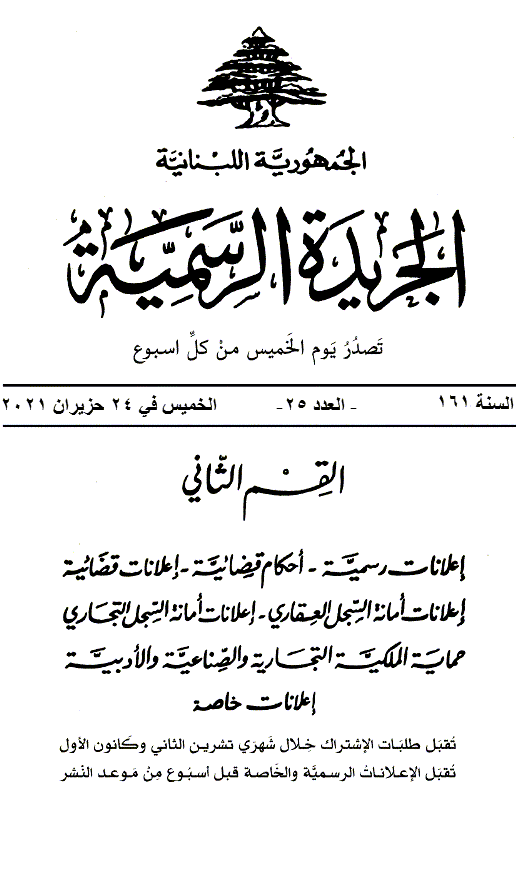 الجمهورية اللبنانية
الجريدة الرسمية
تصدر يوم الخميس من كل اسبوع
السنة ١٦١ - العدد ٢٥ - الخميس في ٢٤ حزيران ٢٠٢١
القسم الثاني
إعلانات رسمية - أحكام قضائية - إعلانات قضائية
إعلانات أمانة السجل العقاري - إعلانات أمانة السجل التجاري
حماية الملكية التجارية والصناعية والأدبية
إعلانات خاصة
تُقبَل طلبَات الإشتراك خِلال شَهرَي تشرين الثاني وكَانون الأول
تُقبَل الإعلاناتُ الرسميَّة والخَاصة قبل أسبُوع مِنْ مَوعد النَشر